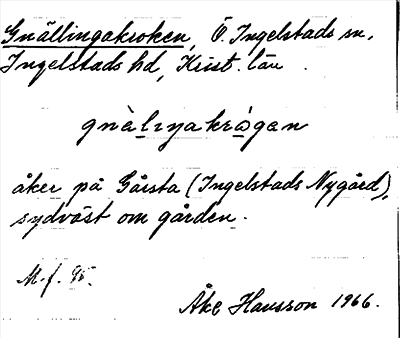 Gnällingakroken, Ö. Ingelstads sn,
Ingelstads hd, Krist. län.
gnèlıŋakrògan
åker på Gårsta (Ingelstads Nygård),
sydväst om gården.
M.f. 95.
Åke Hansson 1966.